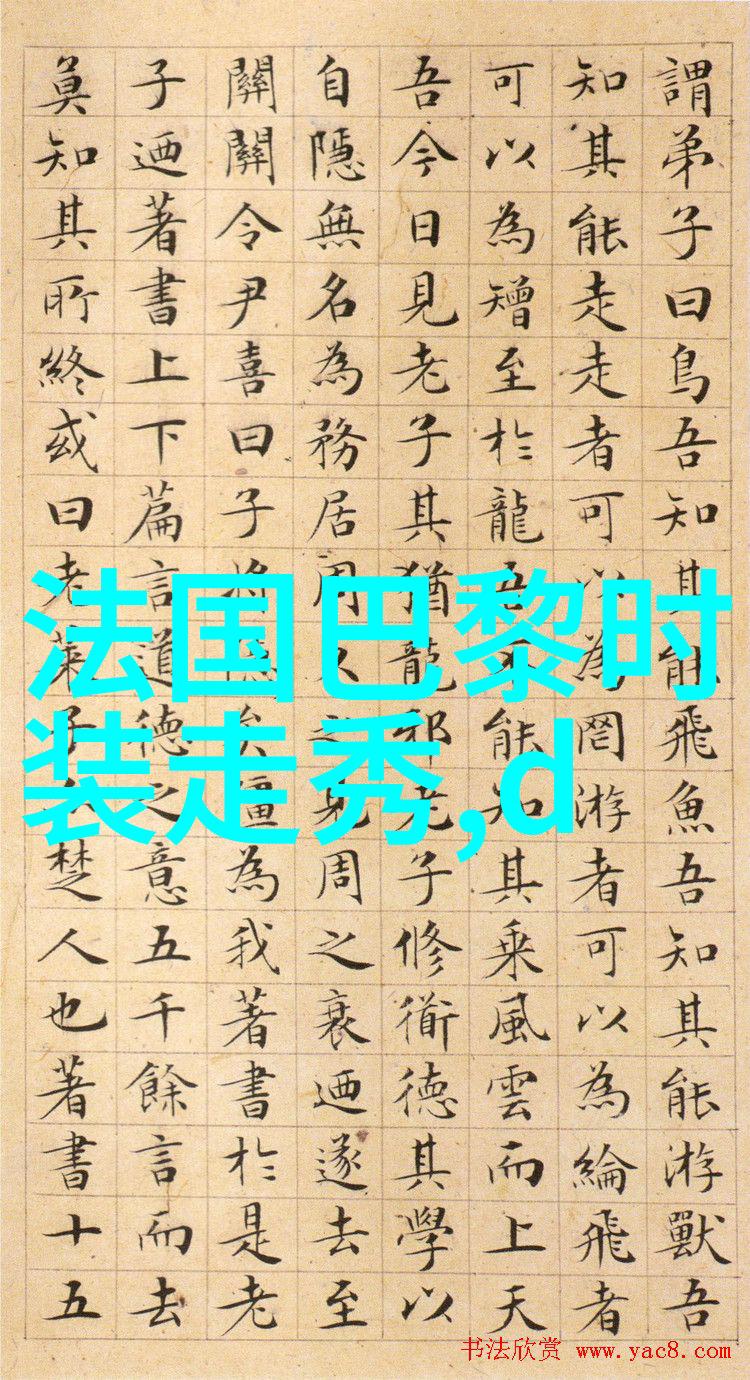 謂弟子曰鳥吾知其能飛魚吾知其能游獸吾
知其能走走者可以為罔游者可以為綸飛者
可以為矰至於龍吾不能知其乘風雲而上天
吾今日見老子其猶龍邪老子修衜德其學以
自隱無名為務居周久之見周之衰迺遂去至
關關令尹喜曰子將隱矣彊為我著書於是老
子迺著書上下篇言道德之意五千餘言而去
莫知其所終或曰老萊子亦楚人也著書十五
法国巴黎时
装走秀,d
书法欣赏 www.yac8.com